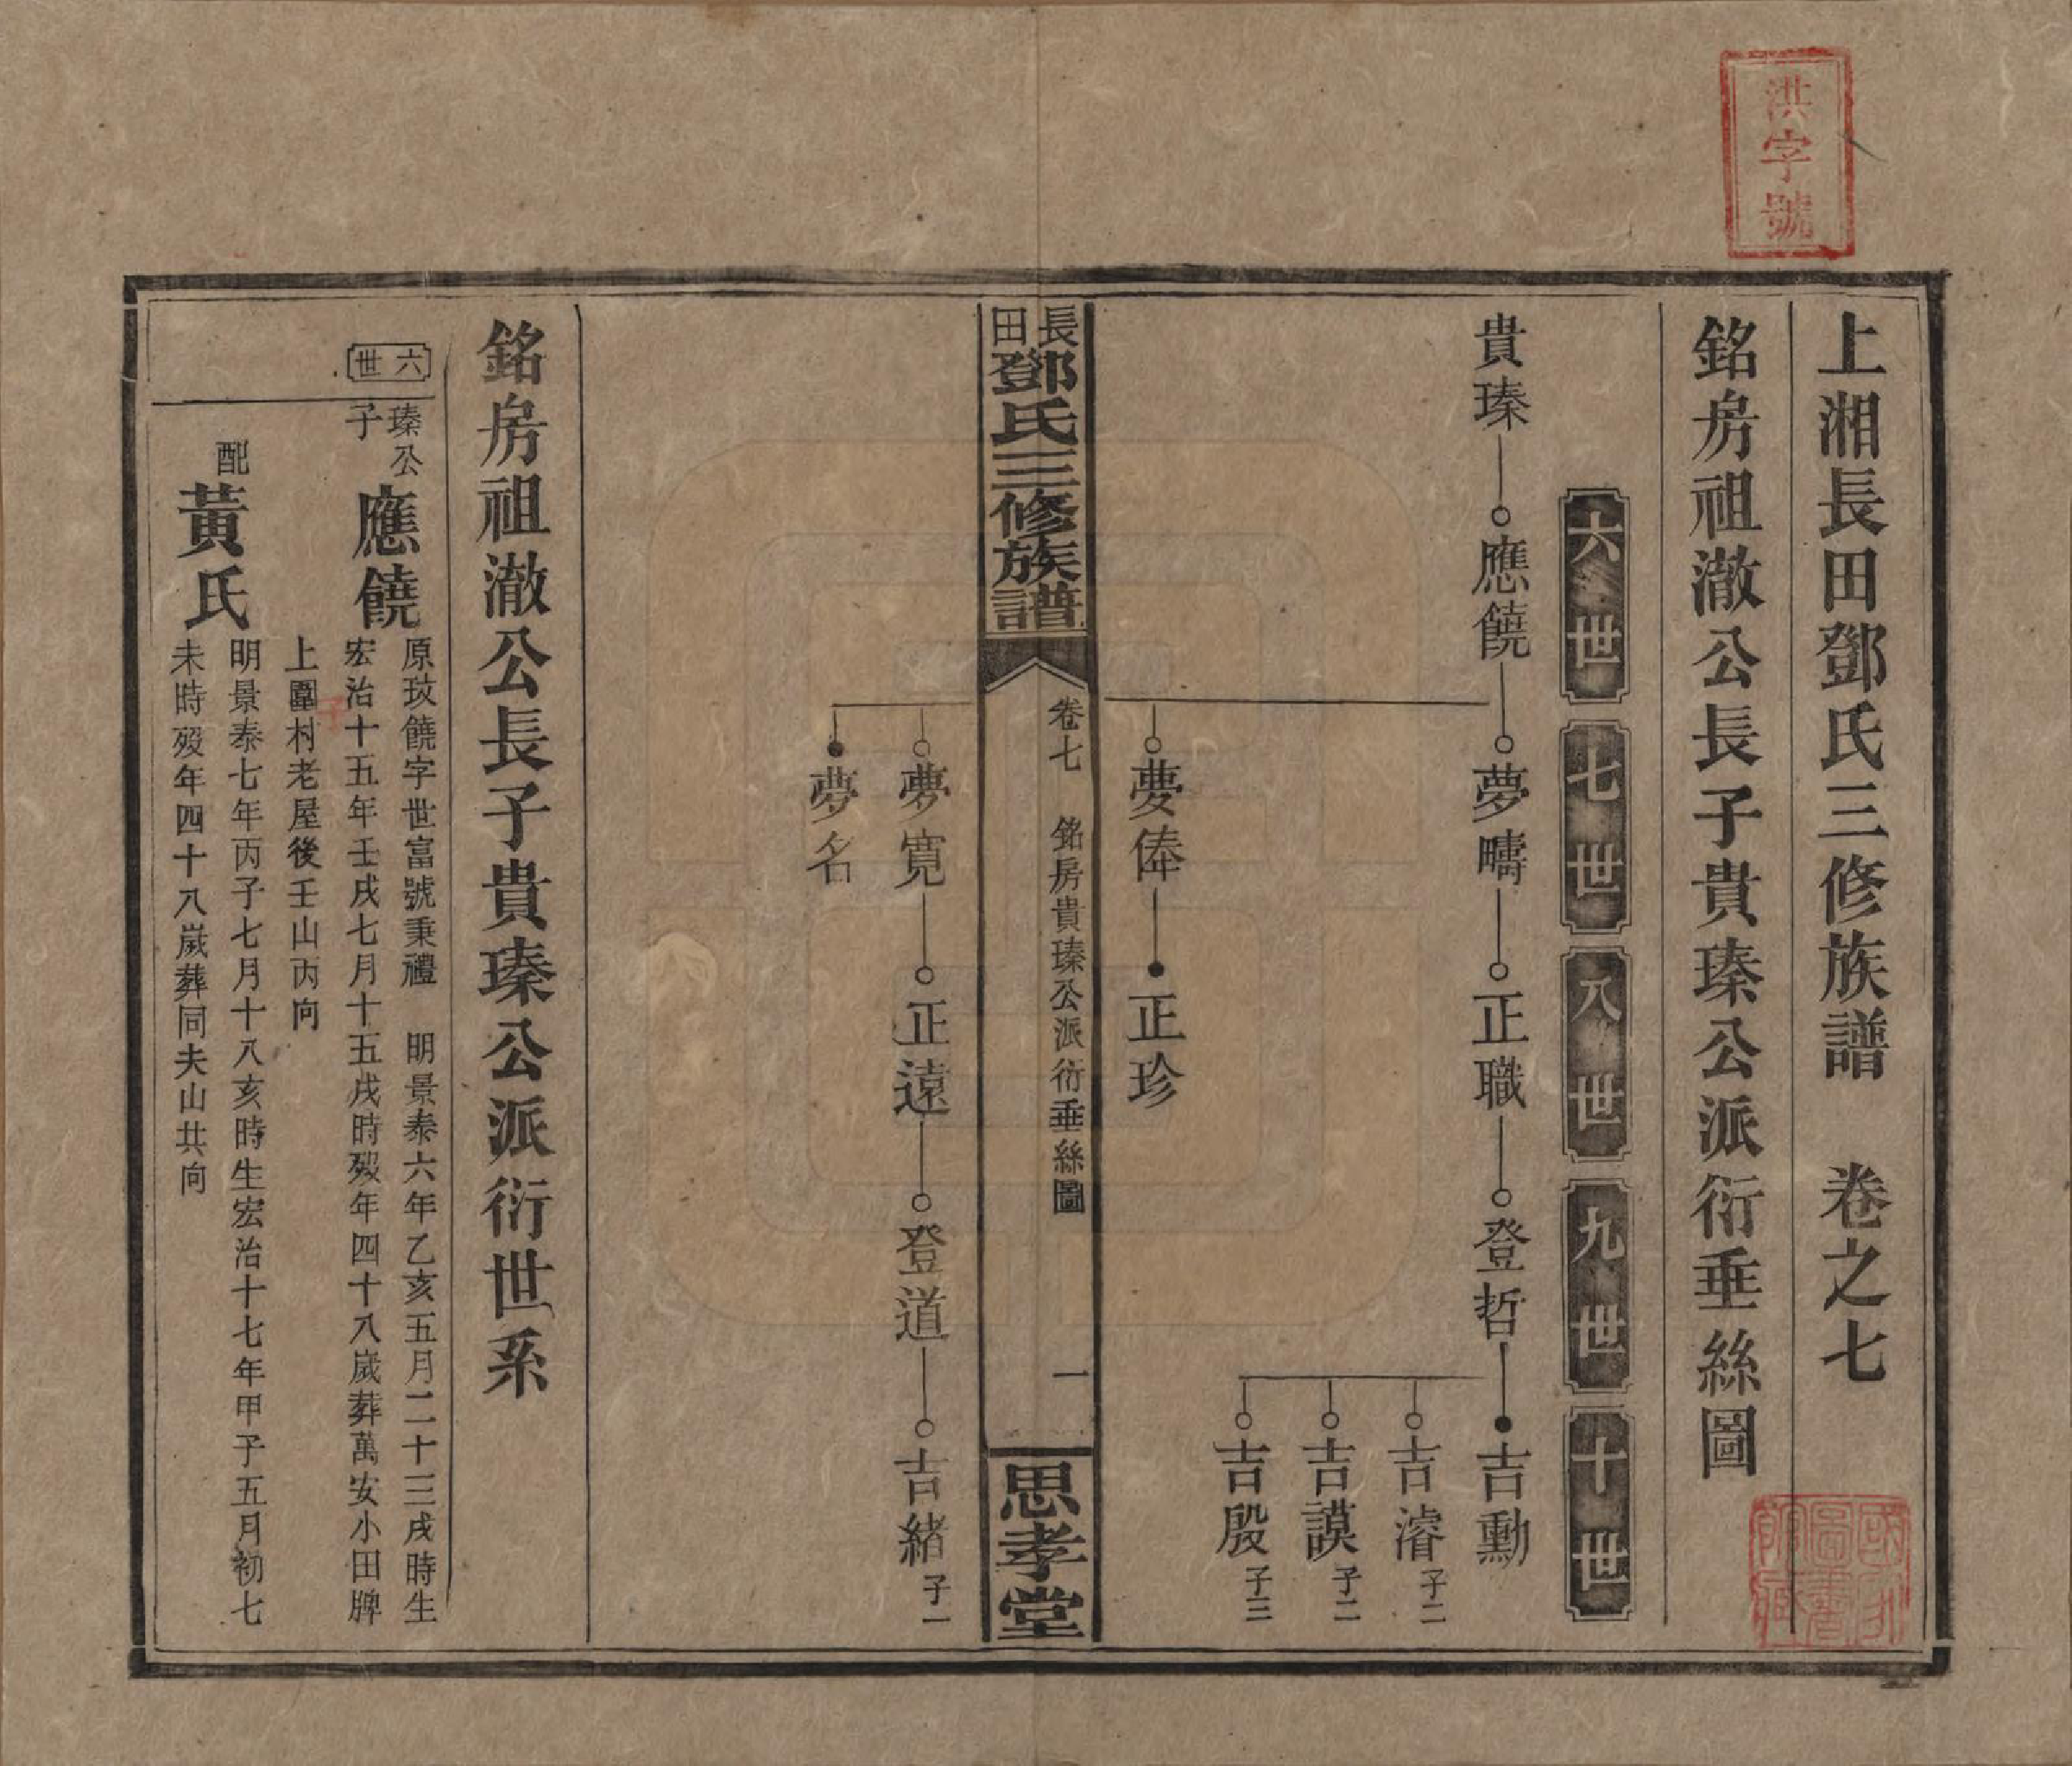 洪字號
上湘長田鄧氏三修族譜　卷之七
銘房祖澈公長子貴瑧公派衍垂絲圖
六世
七世
八世
九世
十世
貴瑧
應饒
夢疇
正職
登哲
吉勳
吉濬 子二
吉謨 子二
吉殷 子三
夢俸
正珍
長田鄧氏三修族譜
卷七　銘房貴瑧公派衍垂絲圖
一
思孝堂
夢寬
正遠
登道
吉緒 子一
夢名
銘房祖澈公長子貴瑧公派衍世系
六世
瑧公子
應饒
原玟饒字世富號秉禮　明景泰六年乙亥五月二十三戌時生
宏治十五年壬戌七月十五戌時歿年四十八歲葬萬安小田牌
上圍村老屋後壬山丙向
子
配
黃氏
明景泰七年丙子七月十八亥時生宏治十七年甲子五月初七
未時歿年四十八歲葬同夫山共向